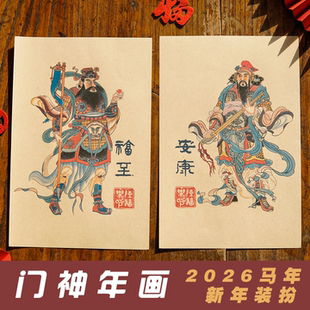 福
福
至
安
康
门神年画
2026马年
新年装扮